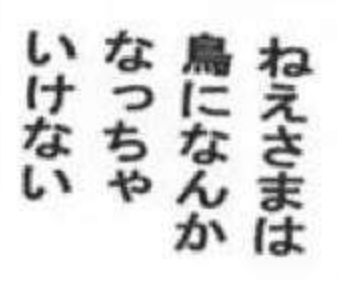 ねえさまは
鳥になんか
なっちゃ
いけない